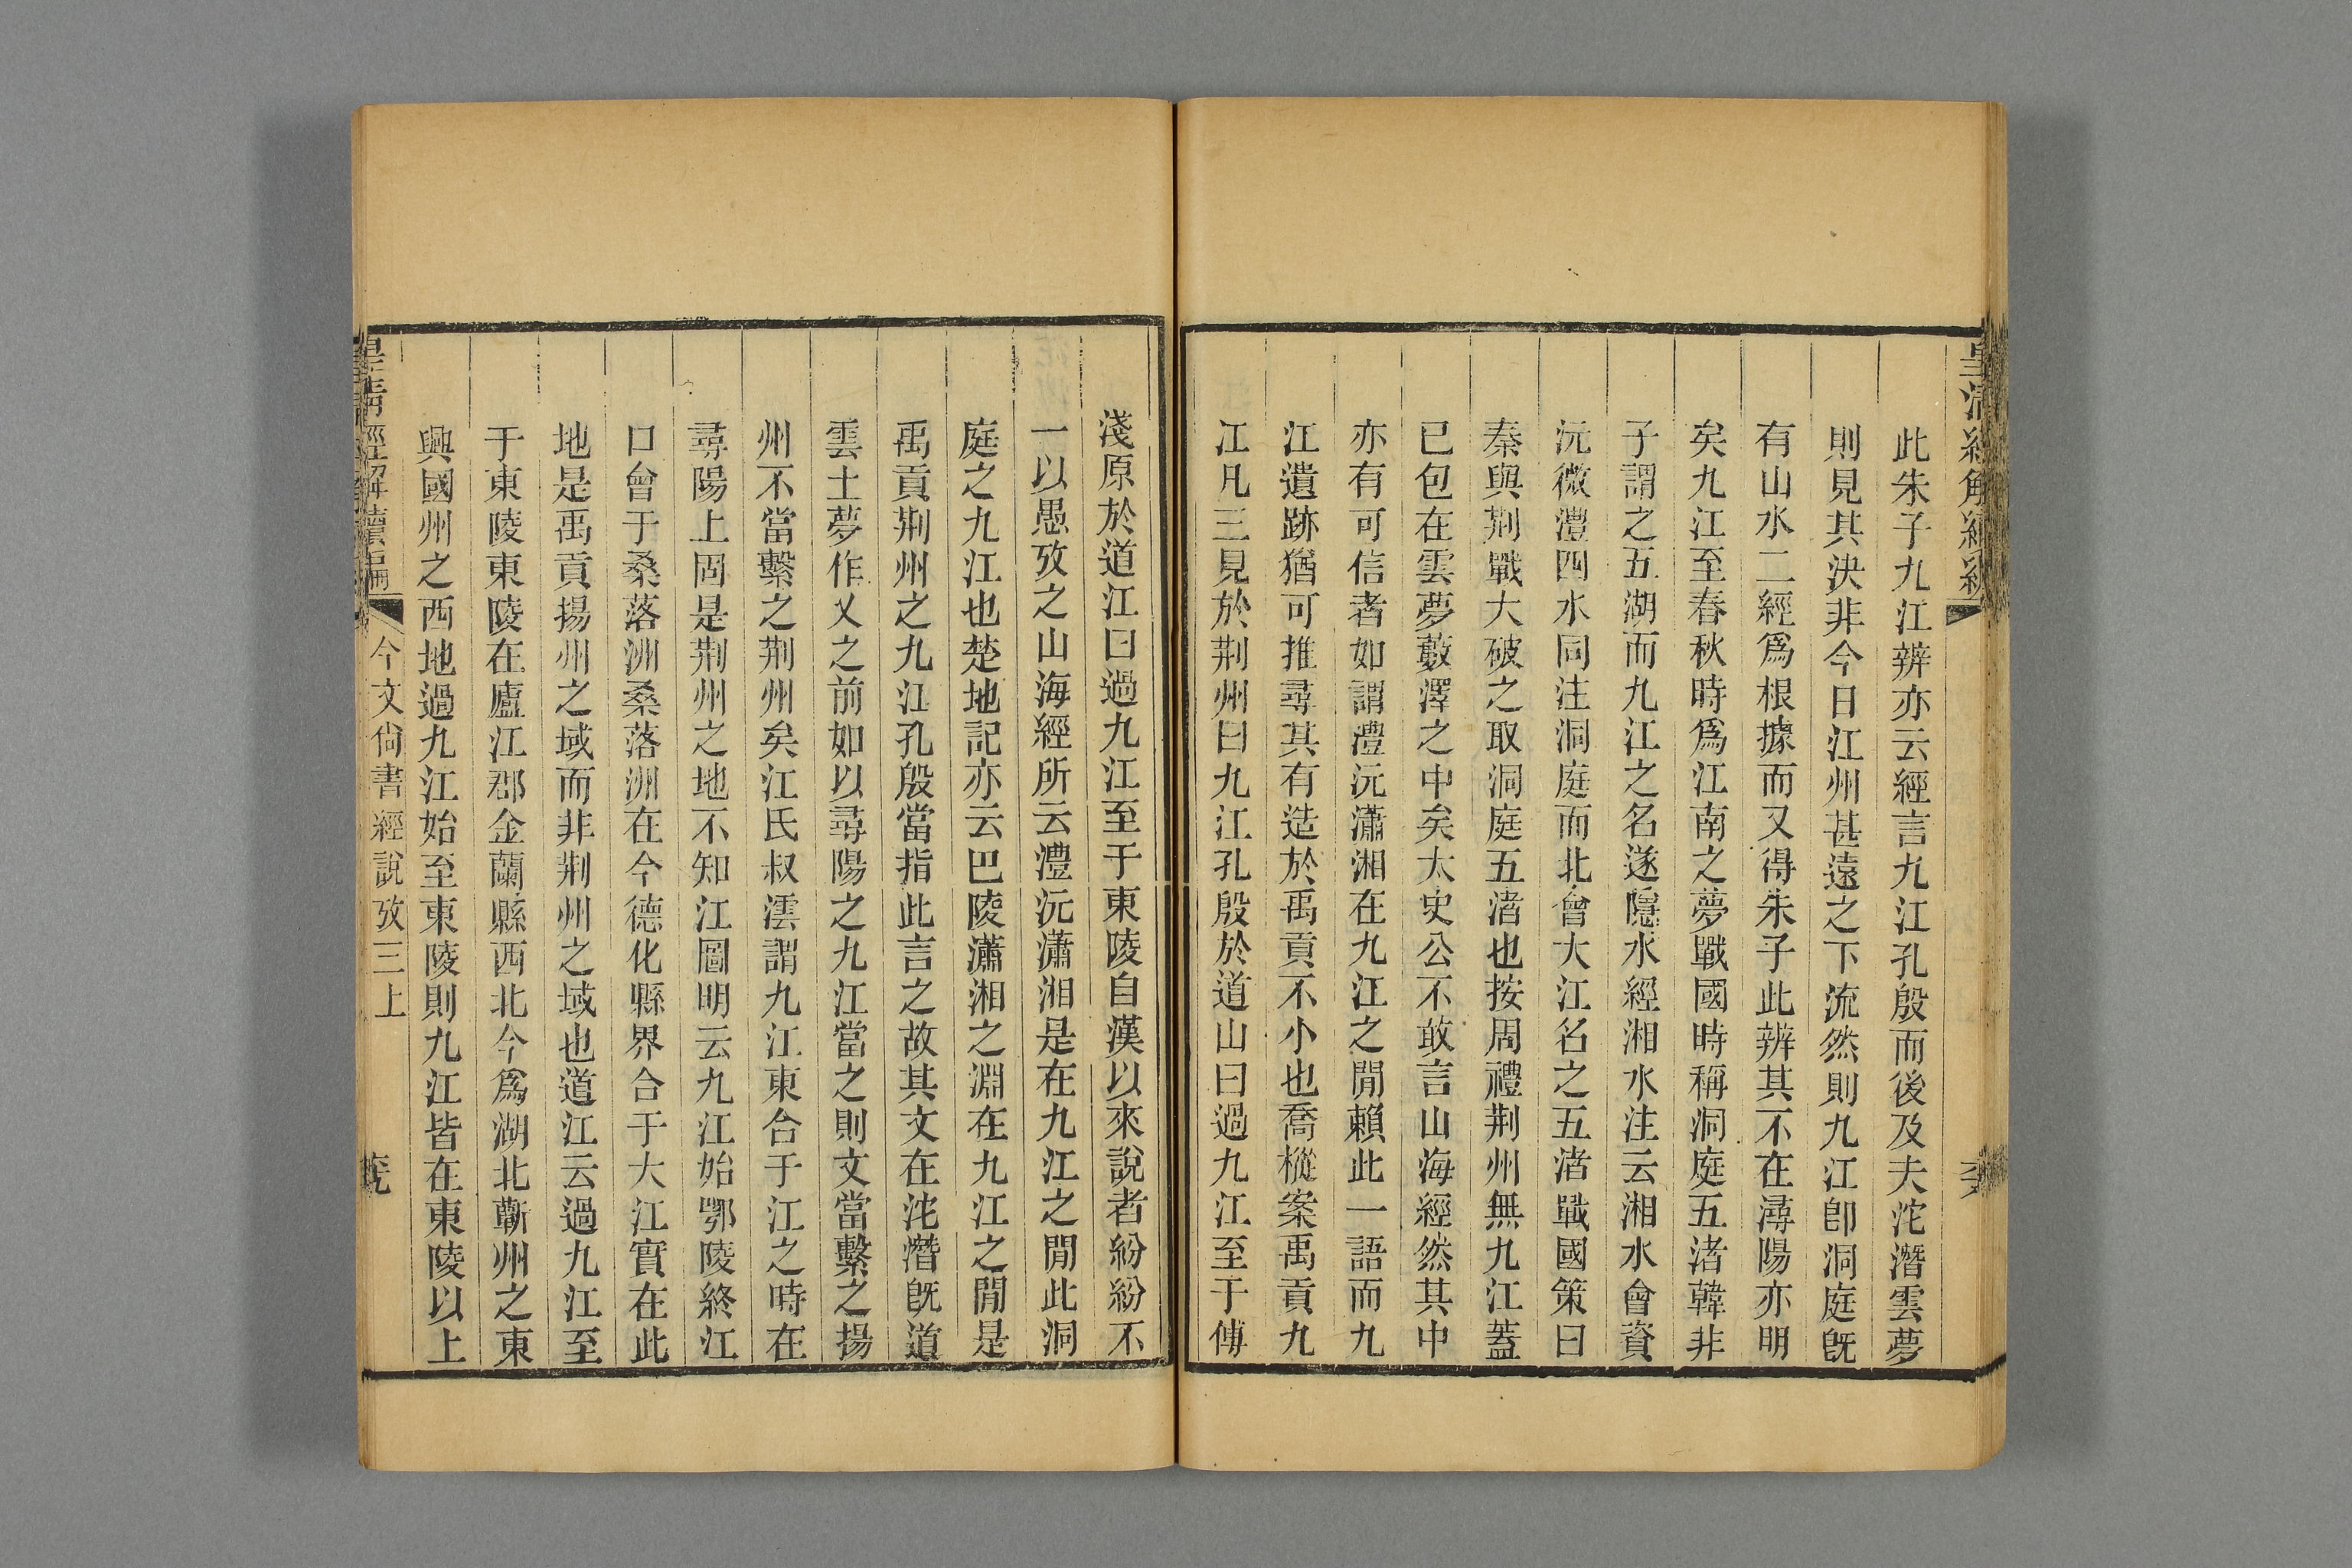 此朱子九江辨亦云經言九江孔殷而後及夫沱潛雲夢
則見其決非今日江州甚遠之下流然則九江卽洞庭旣
有山水二經爲根據而又得朱子此辨其不在潯陽亦明
矣九江至春秋時爲江南之夢戰國時稱洞庭五渚韓非
子謂之五湖而九江之名遂隱水經湘水注云湘水會資
沅微澧四水同注洞庭而北會大江名之五渚戰國策曰
秦與荆戰大破之取洞庭五渚也按周禮荆州無九江蓋
已包在雲夢藪澤之中矣太史公不敢言山海經然其中
亦有可信者如謂澧沅瀟湘在九江之閒賴此一語而九
江遺跡猶可推尋其有造於禹貢不小也喬樅案禹貢九
江凡三見於荆州曰九江孔殷於道山曰過九江至于傅
淺原於道江曰過九江至于東陵自漢以來說者紛紛不
一以愚攷之山海經所云澧沅瀟湘是在九江之閒此洞
庭之九江也楚地記亦云巴陵瀟湘之淵在九江之閒是
禹貢荆州之九江孔殷當指此言之故其文在沱潛旣道
雲土夢作乂之前如以尋陽之九江當之則文當繫之揚
州不當繫之荆州矣江氏叔澐謂九江東合于江之時在
尋陽上固是荆州之地不知江圖明云九江始鄂陵終江
口會于桑落洲桑落洲在今德化縣界合于大江實在此
地是禹貢揚州之域而非荆州之域也道江云過九江至
于東陵東陵在廬江郡金蘭縣西北今爲湖北蘄州之東
興國州之西地過九江始至東陵則九江皆在東陵以上
皇清經解續編
今文尙書經說攷三上